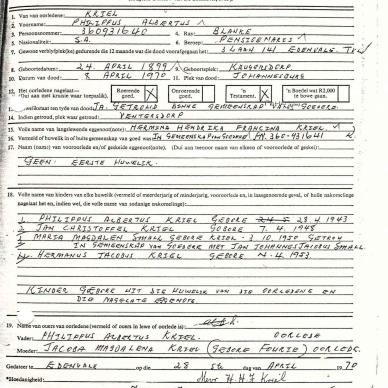 1. Van van oorledene: KRIEL
2. Voorname: PHILIPPUS ALBERTUS
3. Persoonsnommer: 360931640 4. Ras: BLANKE
5. Nasionaliteit: S.A. 6. Beroep: PENSIOENARIS
7. Gewone verblyfplek(ke) gedurende die 12 maande wat die dood voorafgegaan het: 3 LAAN 141 EDENVALE TVL
8. Geboortedatum: 24 APRIL 1899 9. Geboorteplek: KRUGERSDORP.
10. Datum van dood: 8 APRIL 1970 11. Plek van dood: JOHANNESBURG
12. Het oorledene nagelaat— Roerende goed. X Onroerende goed. 'n Testament. X 'n Boedel wat R2,000 te bowe gaan.
(Dui aan met kruisie waar toepaslik.)
JA. GETROUD BINNE GEMEENSKAP VAN GOEDERE
14. Indien getroud, plek waar getroud: VENTERSDORP
15. Volle name van langslewende eggenoot(note): HERMINA HENDRIKA FRANCINA KRIEL.
16. Vermeld of huwelik in of buite gemeenskap van goed was: IN GEMEENSKAP VAN GOEDERE
17. Naam (name) van vooroorlede en/of geskeide eggenoot(note). (Dui aan teenoor naam van elkeen of vooroorlede of geskei):
GEEN. EERSTE HUWELIK.
18. Volle name van kinders van elke huwelik (vermeld of meerderjarig of minderjarig, vooroorlede en, in laasgenoemde geval, of hulle nakomelinge
nagelaat het en, indien wel, die volle name van sodanige nakomelinge):
1. PHILIPPUS ALBERTUS KRIEL GEBORE 28.4.1943
2. JAN CHRISTOFFEL KRIEL GEBORE 7.4.1948
3. MARIA MAGDALEN SMALL GEBORE KRIEL - 3.10.1950 GETROU
IN GEMEENSKAP VAN GOEDER MET JAN JOHANNES JACOBUS SMALL
4. HERMANUS JACOBUS KRIEL GEBORE 4.1953.
KINDER GEBORE UIT DIE HUWELIK VAN DIE OORLEDENE EN
DIE NAGELATE EGGENOTE.
19. Name van ouers van oorledene (vermeld of ouers in lewe of oorlede is):
Vader: PHILIPPUS ALBERTUS KRIEL. OORLEDE
Moeder: JACOBA MAGDALENA KRIEL (GEBORE FOURIE) OORLEDE.
Gedateer te EDENVALE die 28 ste dag van APRIL 1970
*Hoedanigheid: